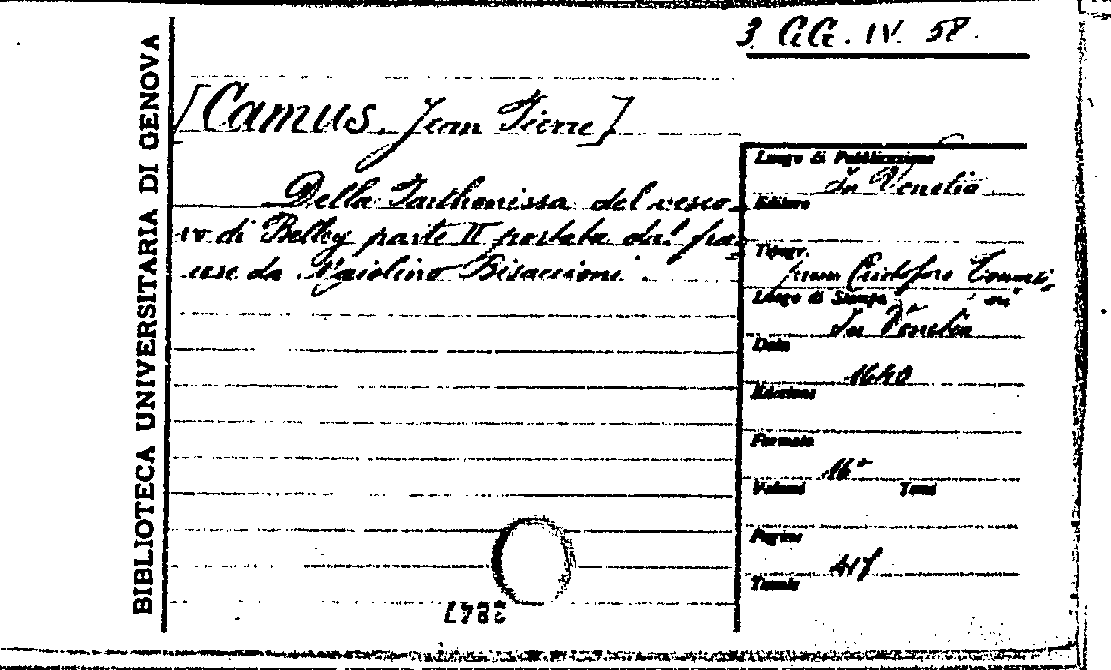 3 GG. IV. 58.
BIBLIOTECA UNIVERSITARIA DI GENOVA
[Camus, Jean Pierre]
Della Parthenissa del vesco-
vo di Belley parte II portata dal fran-
cese da Maiolino Bisaccioni.
Luogo di Pubblicazione
In Venetia
Editore
Tipogr.
presso Cristoforo Tomasi-
ni
Luogo di Stampa
In Venetia
Data
1640
Edizione
Formato
16°
Volumi Tomi
Pagine
Tavole